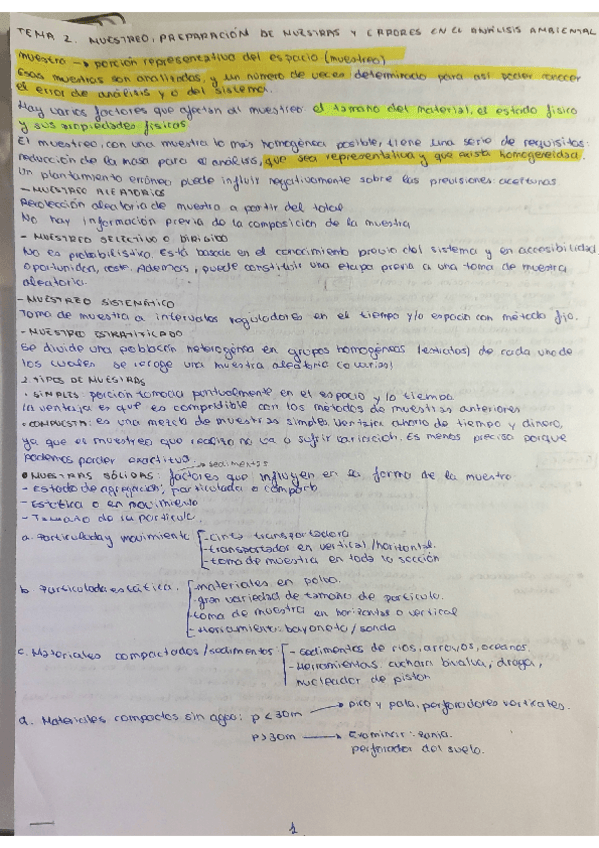 TEMA 2. MUESTREO, PREPARACIÓN DE MUESTRAS Y ERRORES EN EL ANÁLISIS AMBIENTAL
muestro → porción representativa del espacio (muestreo)
Esas muestras son analizadas, y un número de veces determinado para así poder conocer
el error de análisis y o del sistema.
Hay varios factores que afectan al muestreo el tamaño del material, el estado físico
y sus propiedades físicas
El muestreo, con una muestra lo más homogénea posible, tiene una serie de requisitos:
reducción de la masa para el análisis, que sea representativa y que exista homogeneidad.
Un plantamiento erróneo puede influir negativamente sobre las previsiones
- MUESTREO ALEATORIOS
Recolección aleatoria de muestra a partir del total
No hay información previa de la composición de la muestra
- MUESTREO SELECTIVO O DIRIGIDO
No es probabilístico. Está basado en el conocimiento previo del sistema y en accesibilidad
oportunidad, coste. Además, puede constituir una etapa previa a una toma de muestra
aleatoria.
- MUESTREO SISTEMÁTICO
Toma de muestra a intervalos reguladores en el tiempo y/o espacio con método fijo.
- MUESTREO ESTRATIFICADO
Se divide una población heterogénea en grupos homogéneos (estratos) de cada uno de
los cuales se recoge una muestra aleatoria (o varias)
2. TIPOS DE MUESTRAS
· SIMPLES: porción tomada puntualmente en el espacio y lo tiempo.
la ventaja es que es compatible con los métodos de muestras anteriores
· COMPUESTA: es una mezcla de muestras simples. Ventaja ahorro de tiempo y dinero,
ya que el muestreo que realizo no va a sufrir variación. Es menos preciso porque
podemos perder exactitud.
→ sedimentos
• MUESTRAS SÓLIDAS: factores que influyen en la forma de la muestra
- Estado de agregación: particulada o compacto
- Estática o en movimiento
- Tamaño de su partícula.
a. Particulada y movimiento - cinta transportadora
- transportador en vertical/horizontal.
- toma de muestra en toda la sección
b Particulada estática. - materiales en polvo.
- gran variedad de tamaño de partícula.
- toma de muestra en horizontal o vertical
- Herramienta: bayoneta/sonda
c. Materiales compactados/sedimentos - sedimentos de ríos, arroyos, oceanos.
- Herramientas: cuchara bivalva, draga,
nucleador de piston
d. Materiales compactos sin agua: p < 30m → pico y pala, perforadores verticales.
p > 30m → zanja.
perforador del suelo.
1